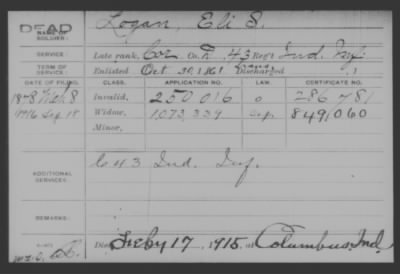 DEAD
NAME OF SOLDIER: Logan, Eli S.
SERVICE: Late rank, Co. K, 43 Reg't Ind. Inf.
TERM OF SERVICE: Enlisted Oct 30, 1861 Discharged , 1
DATE OF FILING. CLASS. APPLICATION NO. LAW. CERTIFICATE NO.
1878 8 Invalid, 250 016 286 781
1916 18 Widow, 1,073,339 849,060
Minor,
ADDITIONAL SERVICES: 43 Ind. Inf.
REMARKS:
Died Feby 17, 1915, at Columbus, Ind